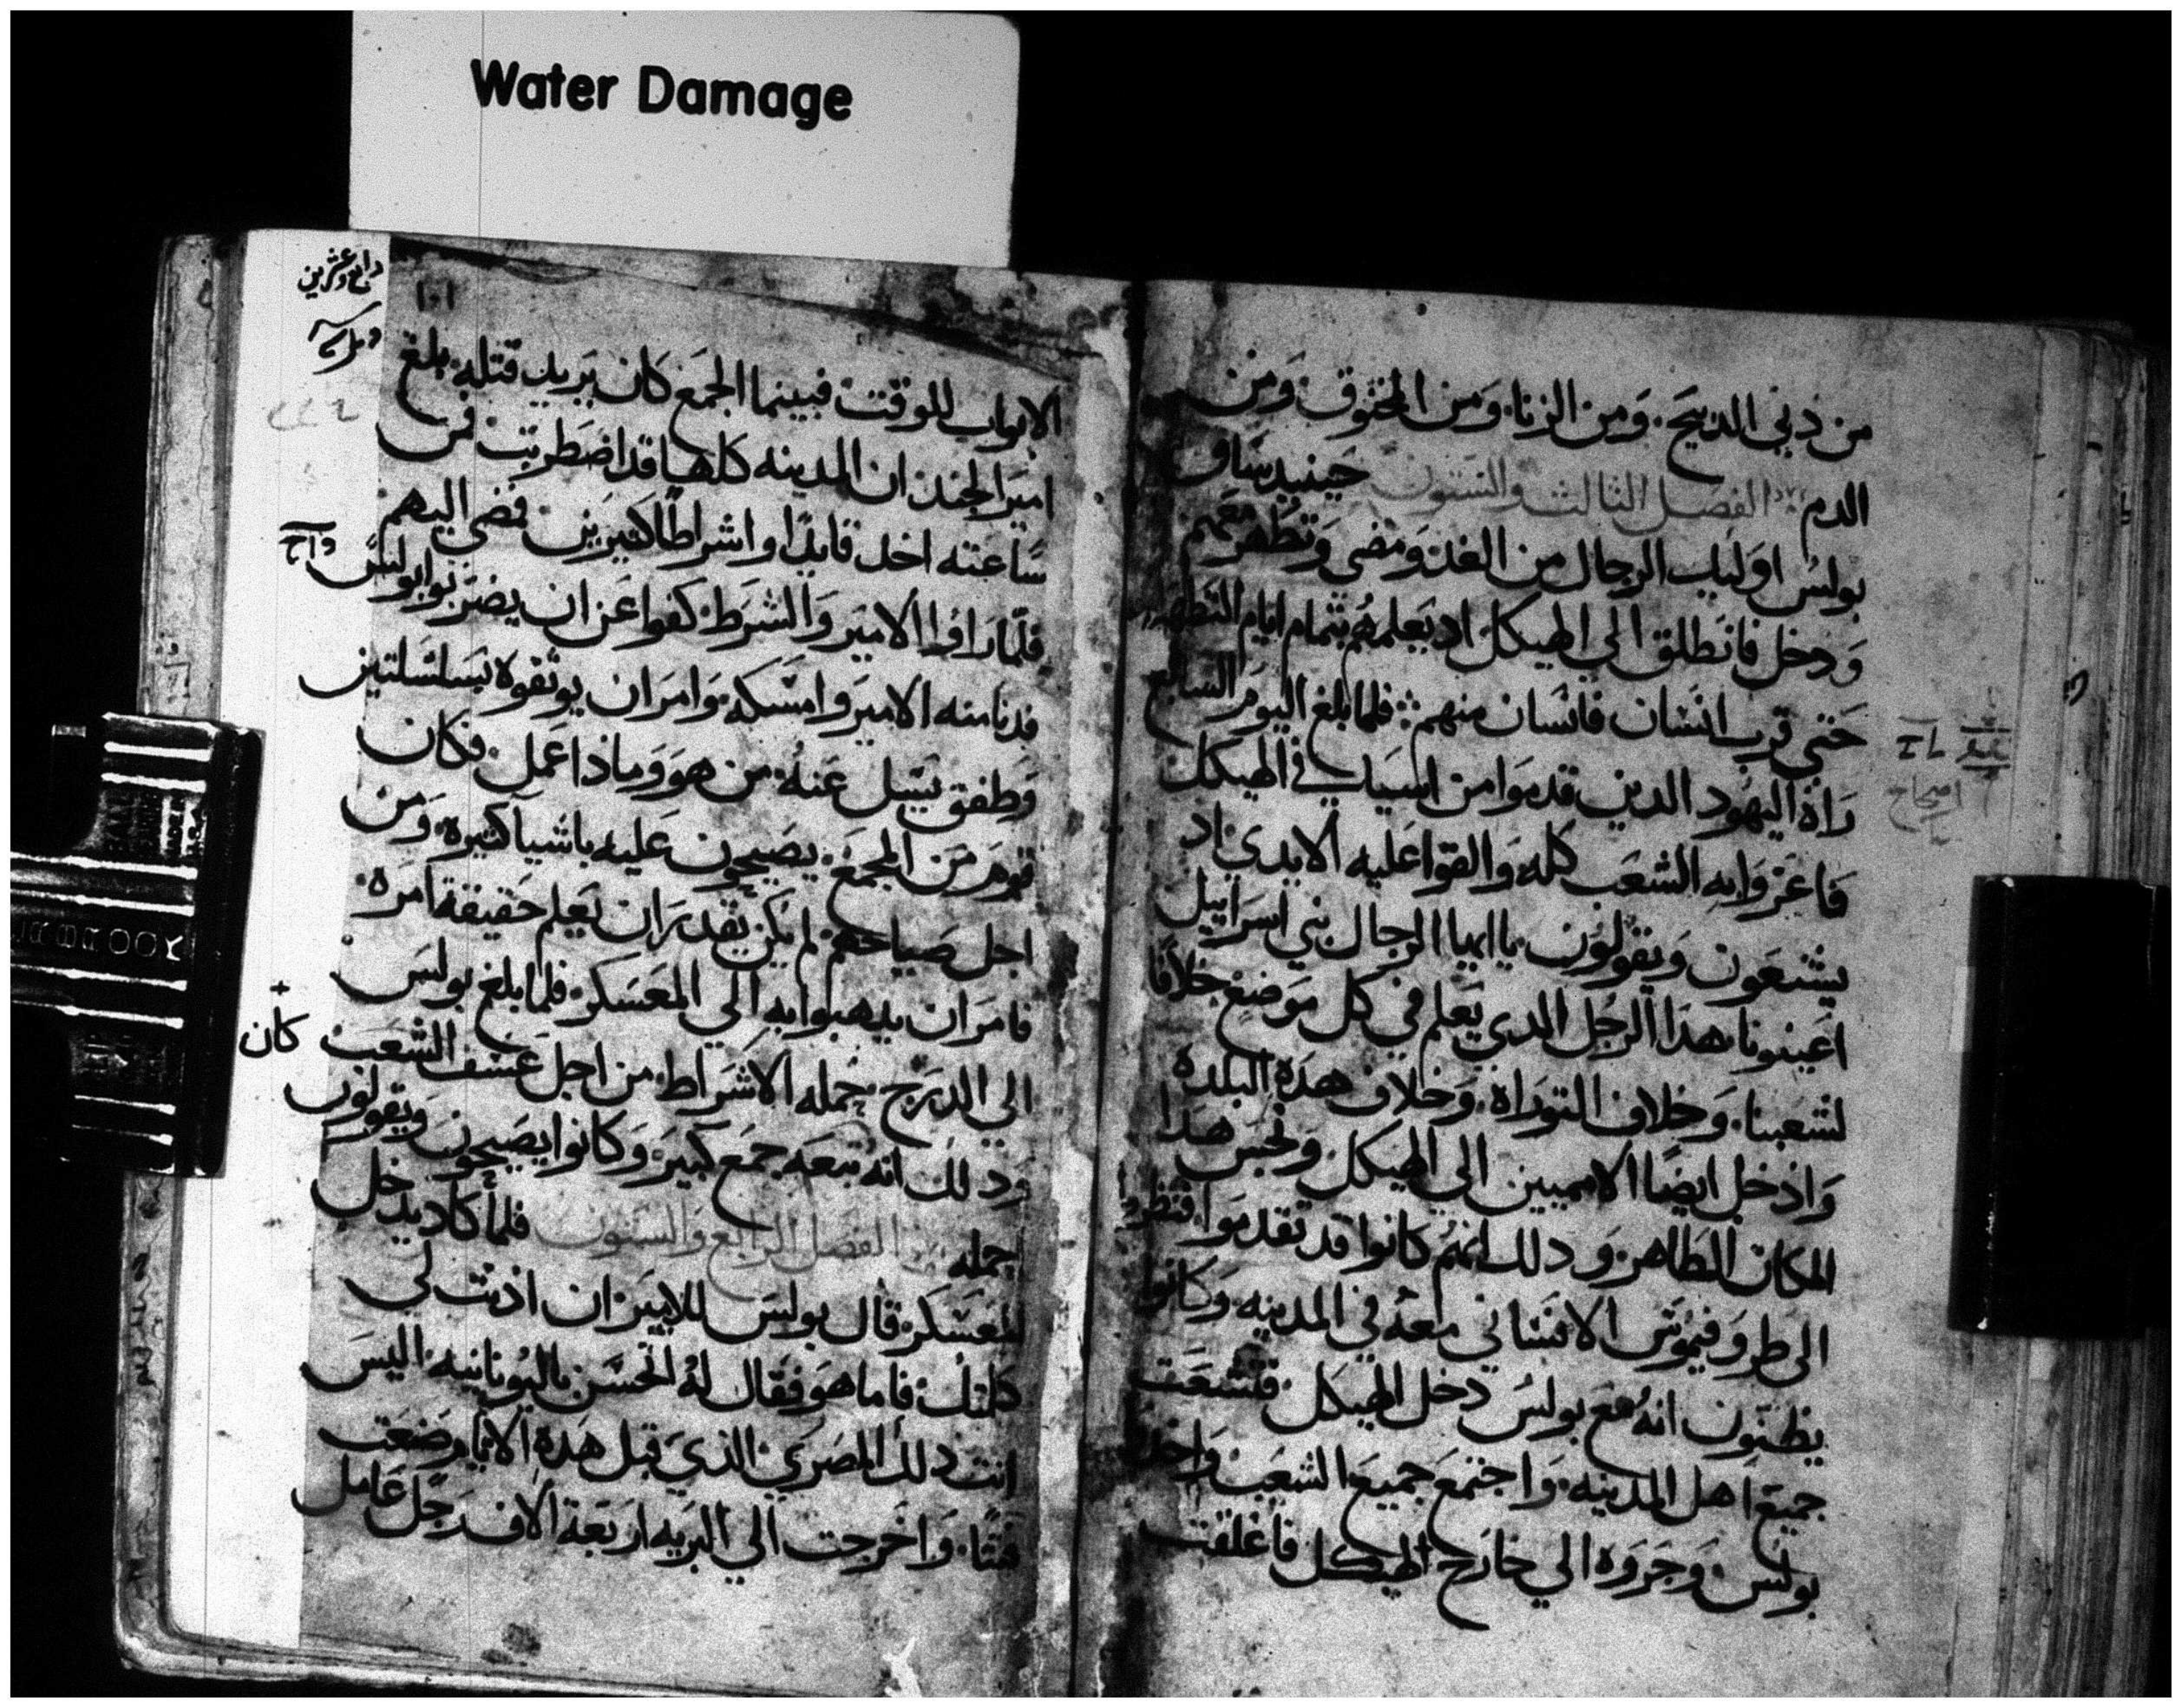 Water Damage
من ذبي الدبيح. ومن الزنا. ومن المخنوق. ومن
الدم الفصل الثالث والستون حينيد ساق
بولس اوليك الرجال من الغد ومضى وتطهر معهم
ودخل فانطلق الي الهيكل اد يعلمهم بتمام ايام التطهير
حتى قرب انسان فانسان منهم فلما بلغ اليوم السابع
راه اليهود الدين قدموا من اسيا في الهيكل
فاغروا به الشعب كله والقوا عليه الايدي اد
يشنعون ويقولون يا ايها الرجال بني اسراييل
اعينونا هدا الرجل الدي يعلم في كل موضع خلافا
لشعبنا. وخلاف التوراه. وخلاف هده البلده
وادخل ايضا الامميين الي الهيكل ونجس هدا
المكان الطاهر ودلك انهم كانوا قد تقدموا فنظروا
الى طروفيموس الافساني معه في المدينه وكانوا
يظنون انه مع بولس دخل الهيكل فتشعت
جميع اهل المدينه. واجتمع جميع الشعب واخدوا
بولس وجروه الي خارج الهيكل فاغلقت
رابع وعشرين
١٠١
الابواب للوقت فبينما الجمع كان يريد قتله بلغ
امير الجند ان المدينه كلها قد اضطربت فمن
ساعته اخد قايدا واشراطا كتيرين فمضى اليهم
فلما راوا الامير والشرط كفوا عن ان يضربوا بولس
فدنا منه الامير وامسكه وامر ان يوتقوه بسلسلتين
وطفق يسيل عنه من هو وماذا عمل. فكان
قوم من المجمع يصيحون عليه باشيا كتيره. ومن
اجل صياحهم لم يكن يقدر ان يعلم حقيقة امره
فامر ان يدهبوا به الي المعسكر فلما بلغ بولس
الي الدرج حمله الاشراط من اجل عسف الشعب كان
ودلك انه تبعه جمع كبير وكانوا يصيحون ويقولون
حمله الفصل الرابع والستون فلما كاد يدخل
المعسكر قال بولس للامير ان اذنت لي
كلمتك فاما هو فقال له اتحسن باليونانيه اليس
انت دلك المصري الذي قبل هده الايام وضعت
فتنا. واخرجت الي البريه اربعة الاف رجل عامل